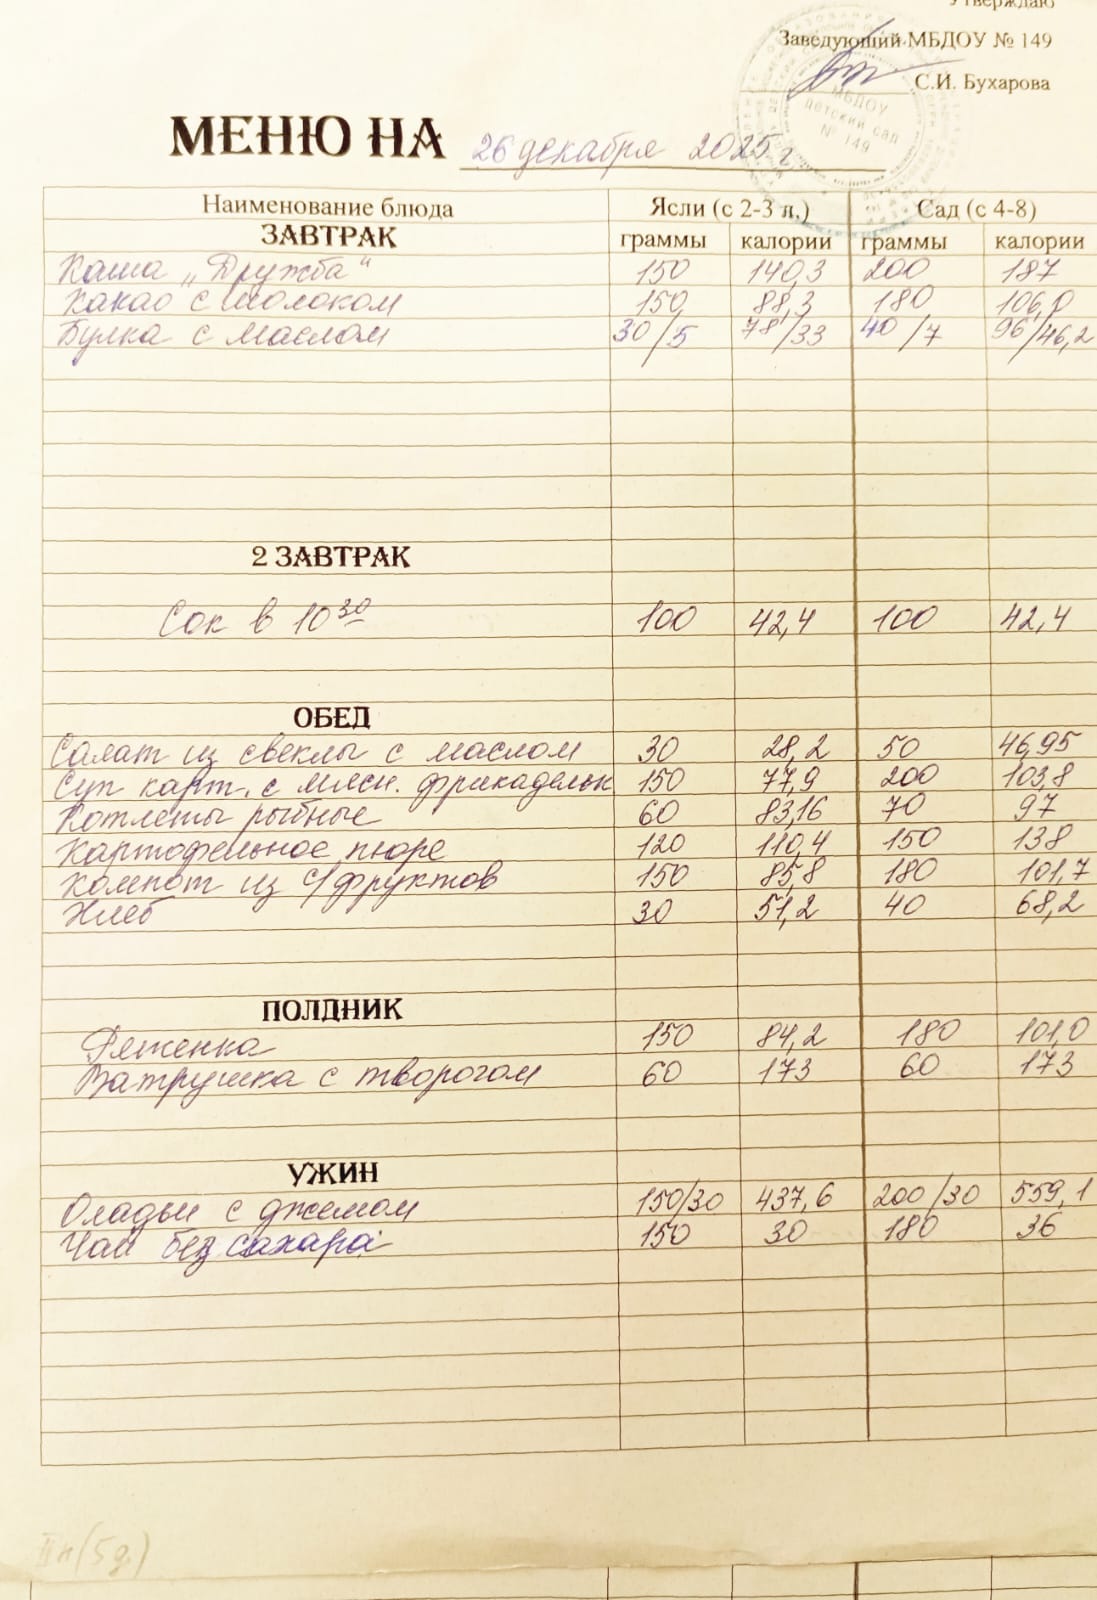 Утверждаю
Заведующий МБДОУ № 149
С.И. Бухарова
МБДОУ
детский сад
№ 149
МЕНЮ НА 26 декабря 2025 г.
Наименование блюда Ясли (с 2-3 л.) Сад (с 4-8)
ЗАВТРАК граммы калории граммы калории
Каша „Дружба“ 150 140,3 200 187
Какао с молоком 150 88,3 180 106,0
Булка с маслом 30/5 78/33 40/7 96/46,2
2 ЗАВТРАК
Сок в 10 30 100 42,4 100 42,4
ОБЕД
Салат из свеклы с маслом 30 28,2 50 46,95
Суп карт. с мясн. фрикадельк 150 77,9 200 103,8
Котлеты рыбные 60 83,16 70 97
Картофельное пюре 120 110,4 150 138
Компот из с/фруктов 150 85,8 180 101,7
Хлеб 30 51,2 40 68,2
ПОЛДНИК
Ряженка 150 84,2 180 101,0
Ватрушка с творогом 60 173 60 173
УЖИН
Оладьи с джемом 150/30 437,6 200/30 559,1
Чай без сахара 150 30 180 36
II н (5 д.)